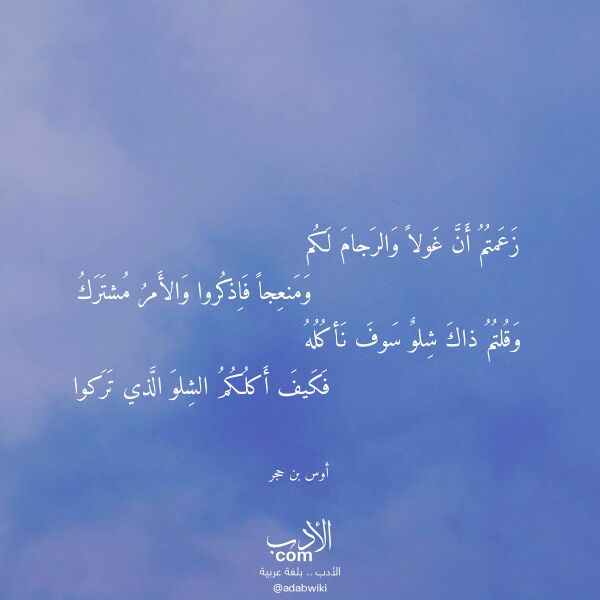 زَعَمتُمُ أَنَّ غَولاً وَالرَجامَ لَكُم
وَمَنعِجاً فَاِذكُروا وَالأَمرُ مُشتَرَكُ
وَقُلتُمُ ذاكَ شِلوٌ سَوفَ نَأكُلُهُ
فَكَيفَ أَكلُكُمُ الشِلوَ الَّذي تَرَكوا
أوس بن حجر
الأدب
com
الأدب .. بلغة عربية
@adabwiki